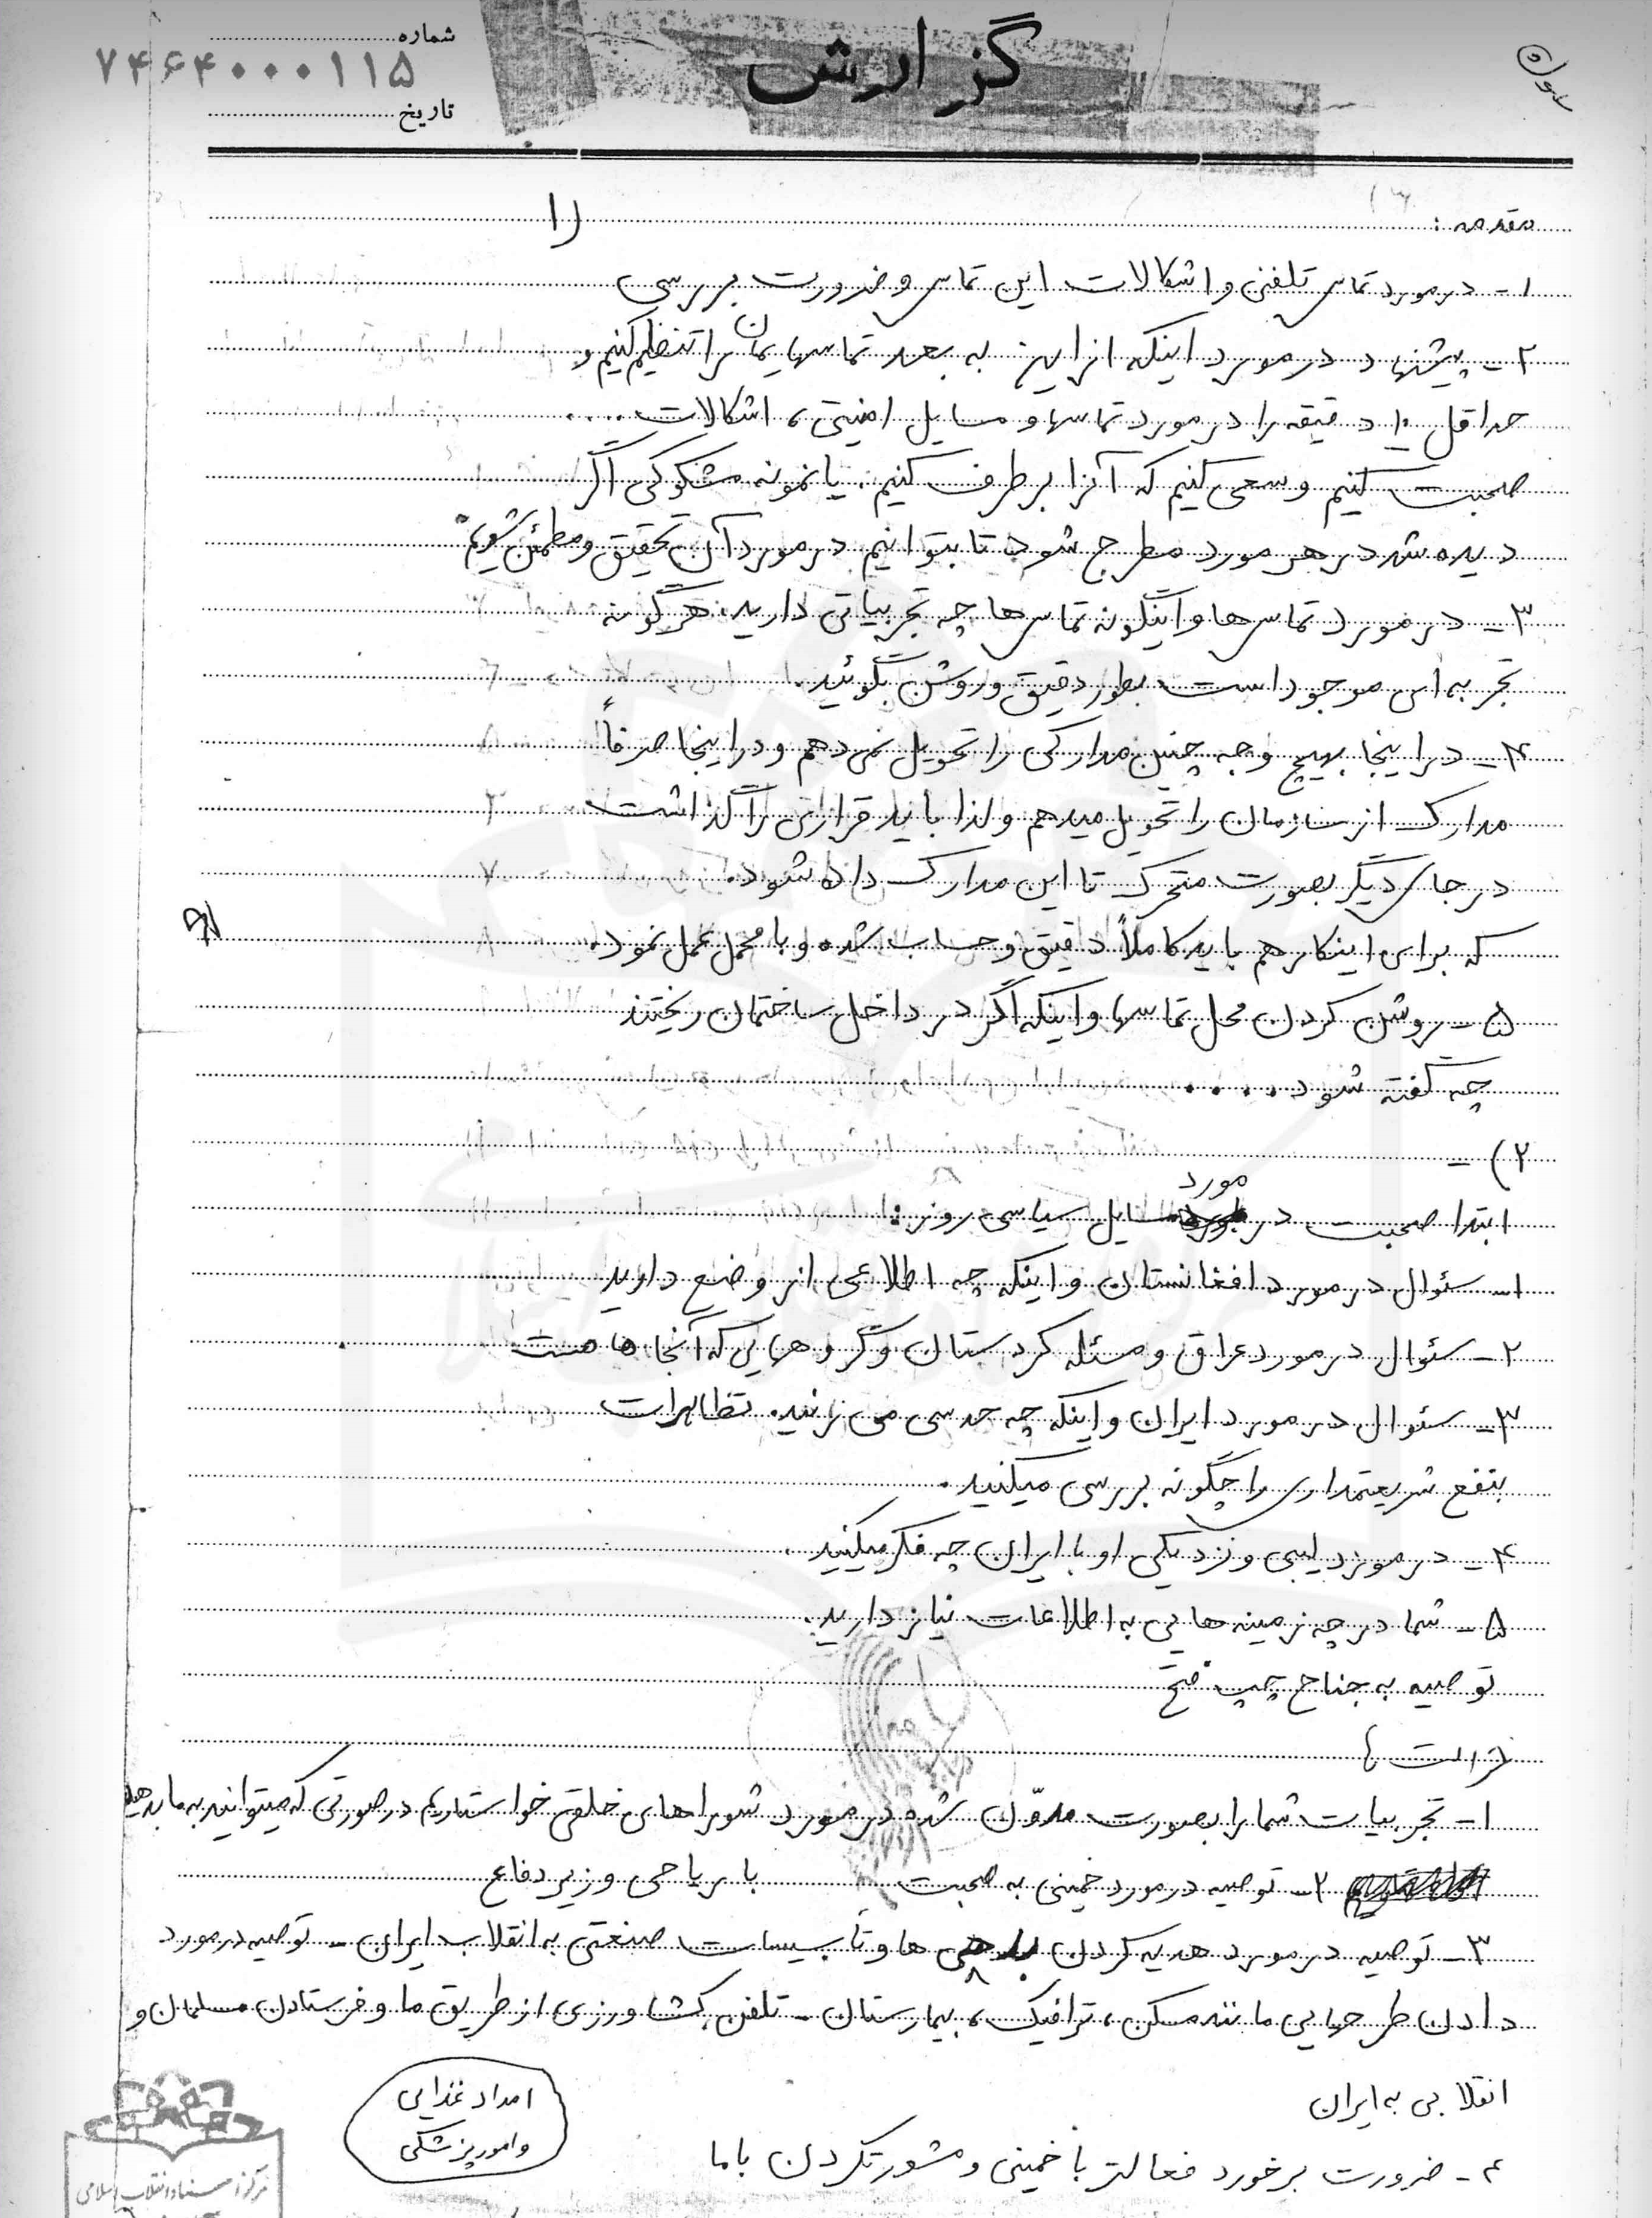 شماره
۷۴۶۴۰۰۰۱۱۵
گزارش
تاریخ
مقدمه :
(۱
۱- در مورد تماس تلفنی و اشکالات این تماس و ضرورت بررسی
۲- پیشنهاد در مورد اینکه از این به بعد تماسهایمان را تنظیم کنیم و
حداقل ۱۰ دقیقه را در مورد تماسها و مسایل امنیتی، اشکالات ....
صحبت کنیم و سعی کنیم که آنرا برطرف کنیم. یا نمونه مشکوکی اگر
دیده شد در هر مورد مطرح شود تا بتوانیم در مورد آن تحقیق و مطمئن شویم
۳- در مورد تماس‌ها و اینگونه تماس‌ها چه تجربیاتی دارید. هرگونه
تجربه‌ای موجود است بطور دقیق و روشن بگوئید.
۴- در اینجا بهیچ وجه چنین مدارکی را تحویل نمی‌دهم و در اینجا صرفاً
مدارک از سازمان را تحویل میدهم و لذا باید قراراتی را گذاشت
در جای دیگر بصورت متحرک تا این مدارک داده شود.
که برای اینکار هم باید کاملاً دقیق و حساب شده و با محمل عمل نمود.
۵- روشن کردن محل تماسها و اینکه اگر در داخل ساختمان ریختند
چه گفته شود ....
۲) -
مورد
ابتدا صحبت در مسایل سیاسی روز :
۱- سئوال در مورد افغانستان و اینکه چه اطلاعی از وضع دارید
۲- سئوال در مورد عراق و مسئله کردستان و گروههایی که آنجاها هست
۳- سئوال در مورد ایران و اینکه چه حدسی می زنید. تظاهرات
بنفع شریعتمداری را چگونه بررسی میکنید.
۴- در مورد لیبی و نزدیکی او با ایران چه فکر میکنید.
۵- شما در چه زمینه هایی به اطلاعات نیاز دارید.
توصیه به جناح چپ فتح
۱- تجربیات شما را بصورت مدوّن شده در مورد شوراهای خلقی خواستاریم در صورتی که میتوانید به ما بدهید
۲- توصیه در مورد خمینی به صحبت با ریاحی وزیر دفاع
۳- توصیه در مورد هدیه کردن ها و تأسیسات صنعتی به انقلاب ایران - توصیه در مورد
دادن طرحهایی مانند مسکن، ترافیک، بیمارستان - تلفن کشاورزی از طریق ما و فرستادن مسلمان و
انقلابی به ایران
امداد غذایی
و امور پزشکی
۴- ضرورت برخورد فعالتر با خمینی و مشورت کردن با ما
مرکز اسناد انقلاب اسلامی